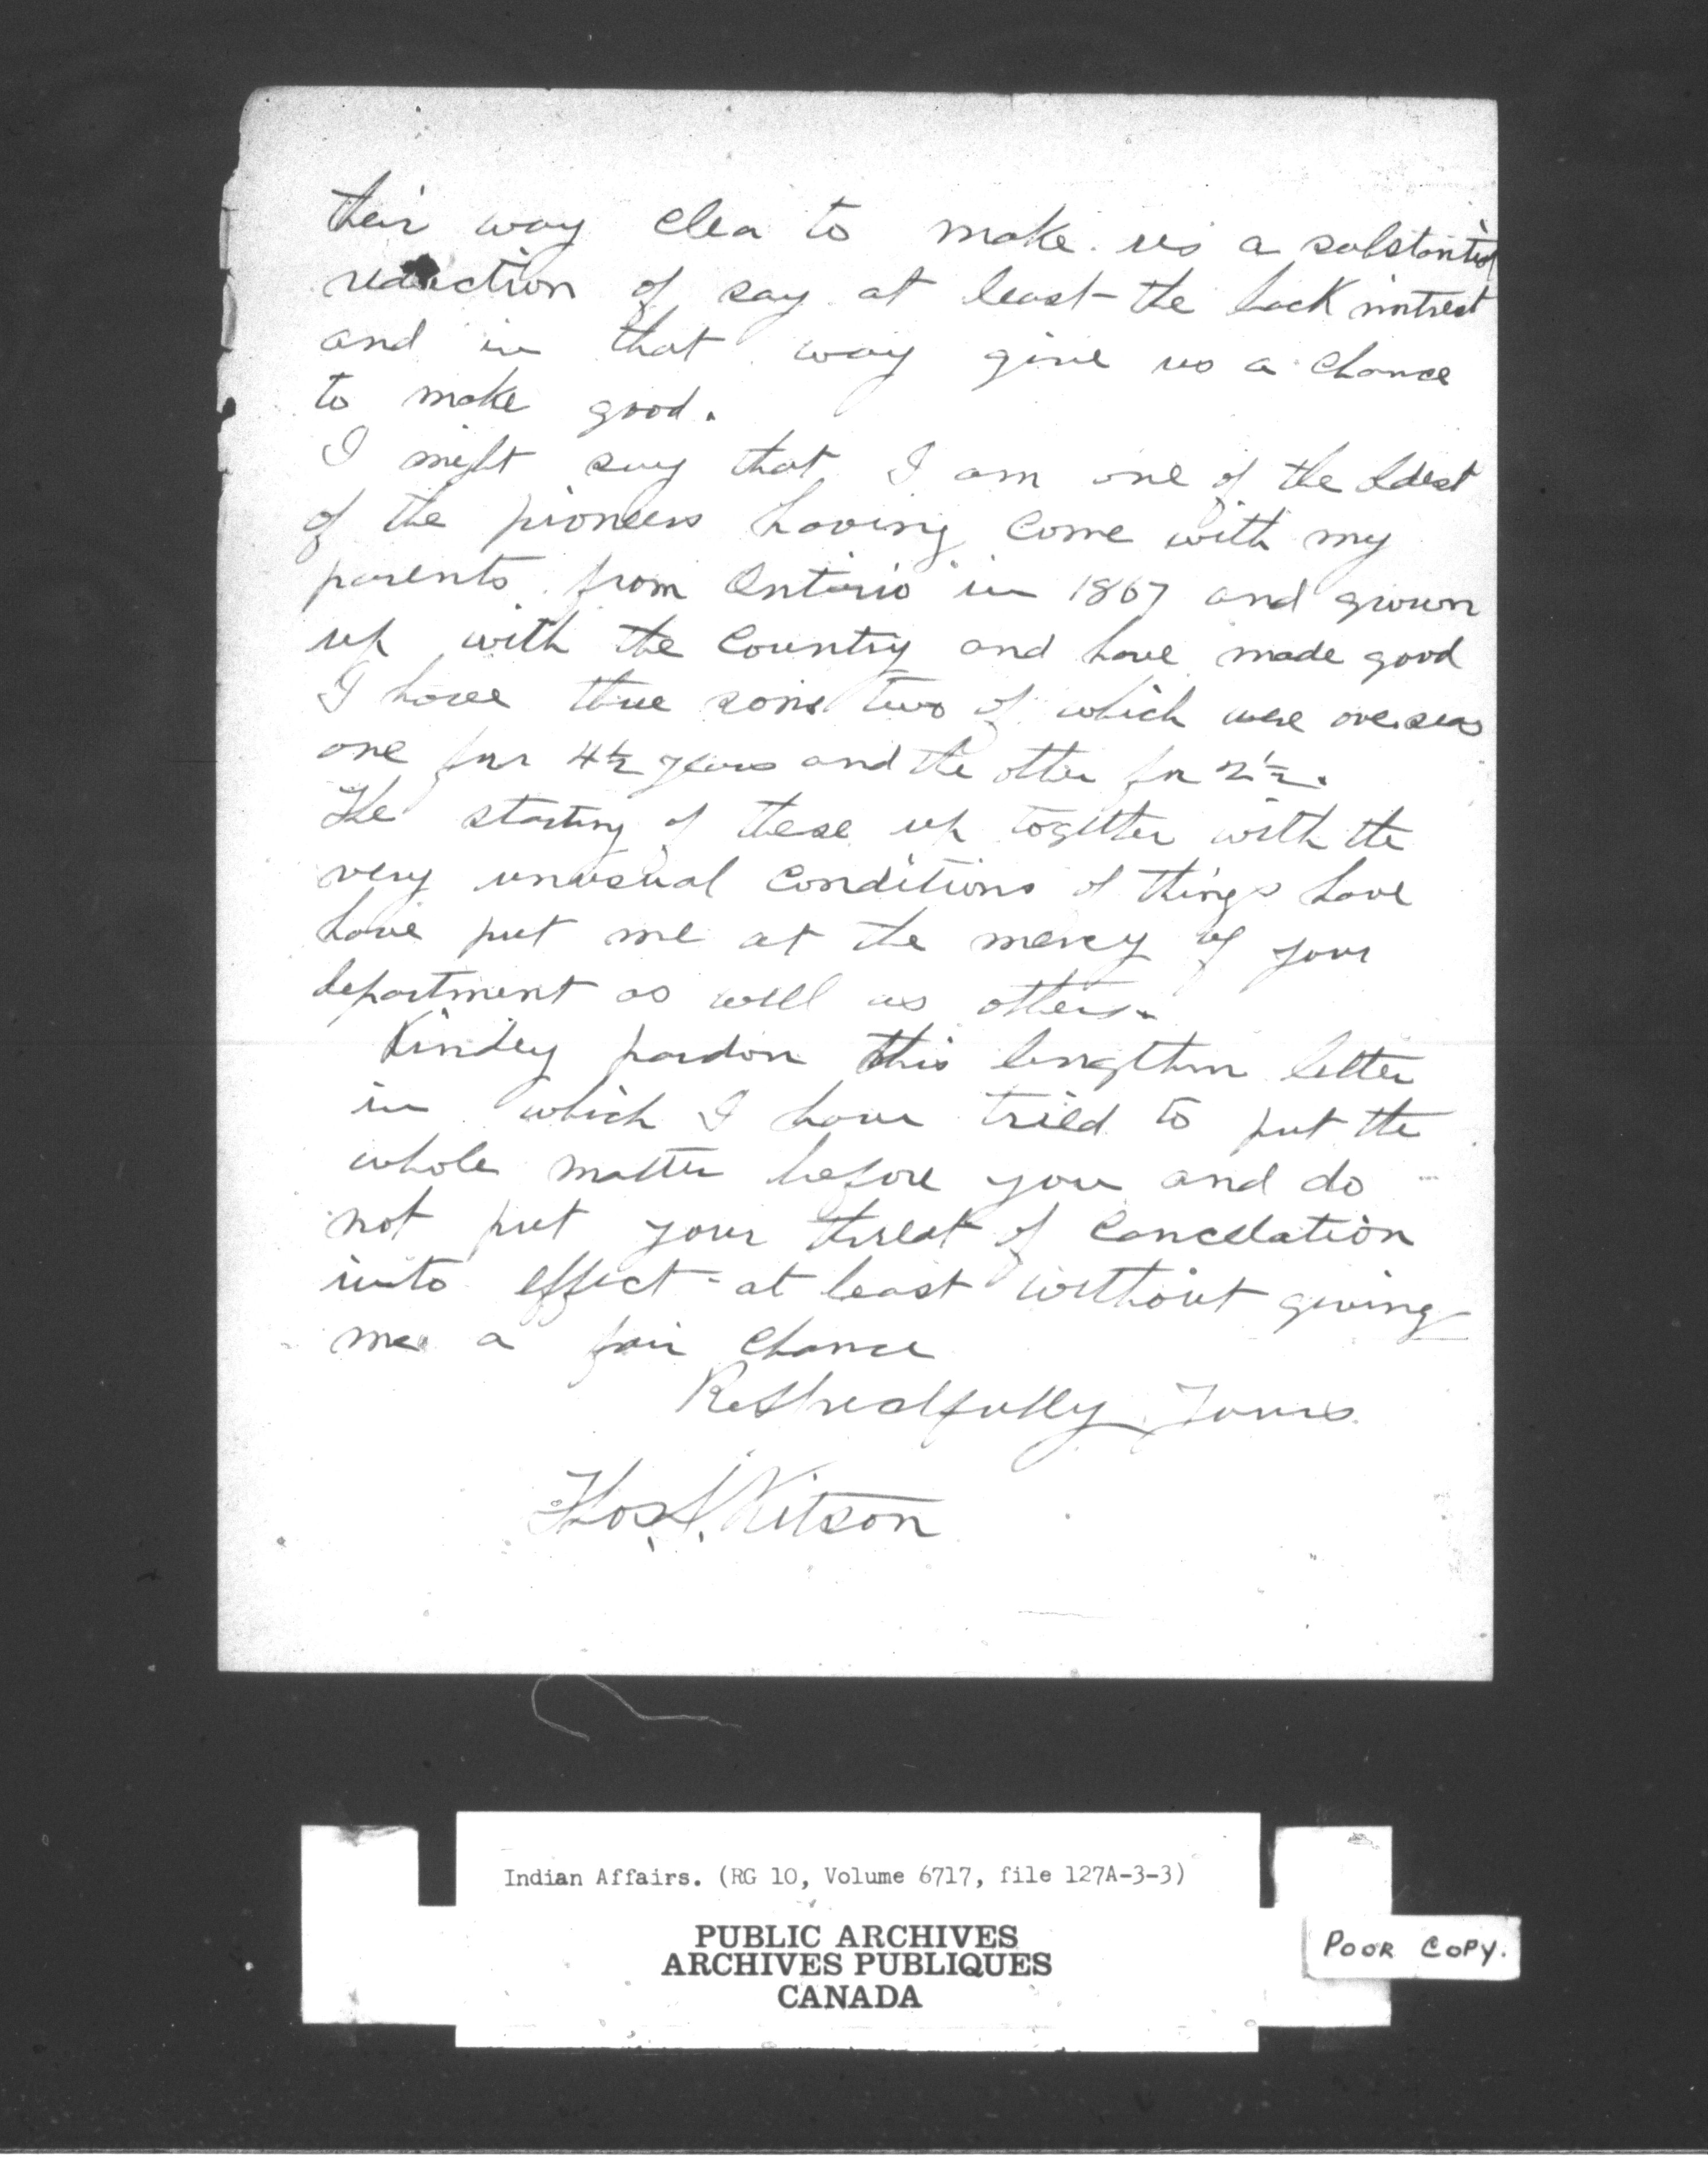 their way clea to make us a substantial
reduction of say at least the back intrest
and in that way give us a chance
to make good.
I might say that I am one of the oldest
of the pioneers having come with my
parents from Ontario in 1867 and grown
up with the country and have made good
I have three sons two of which were overseas
one for 4½ years and the other for 2½.
The starting of these up together with the
very unusual conditions of things have
have put me at the mercy of your
department as well as others.
Kindley pardon this lengthy letter
in which I have tried to put the
whole matter before you and do
not put your threat of cancelation
into effect at least without giving
me a fair chance
Respectfully Yours
Thos. Kitson
Indian Affairs. (RG 10, Volume 6717, file 127A-3-3)
PUBLIC ARCHIVES
ARCHIVES PUBLIQUES
CANADA
POOR COPY.